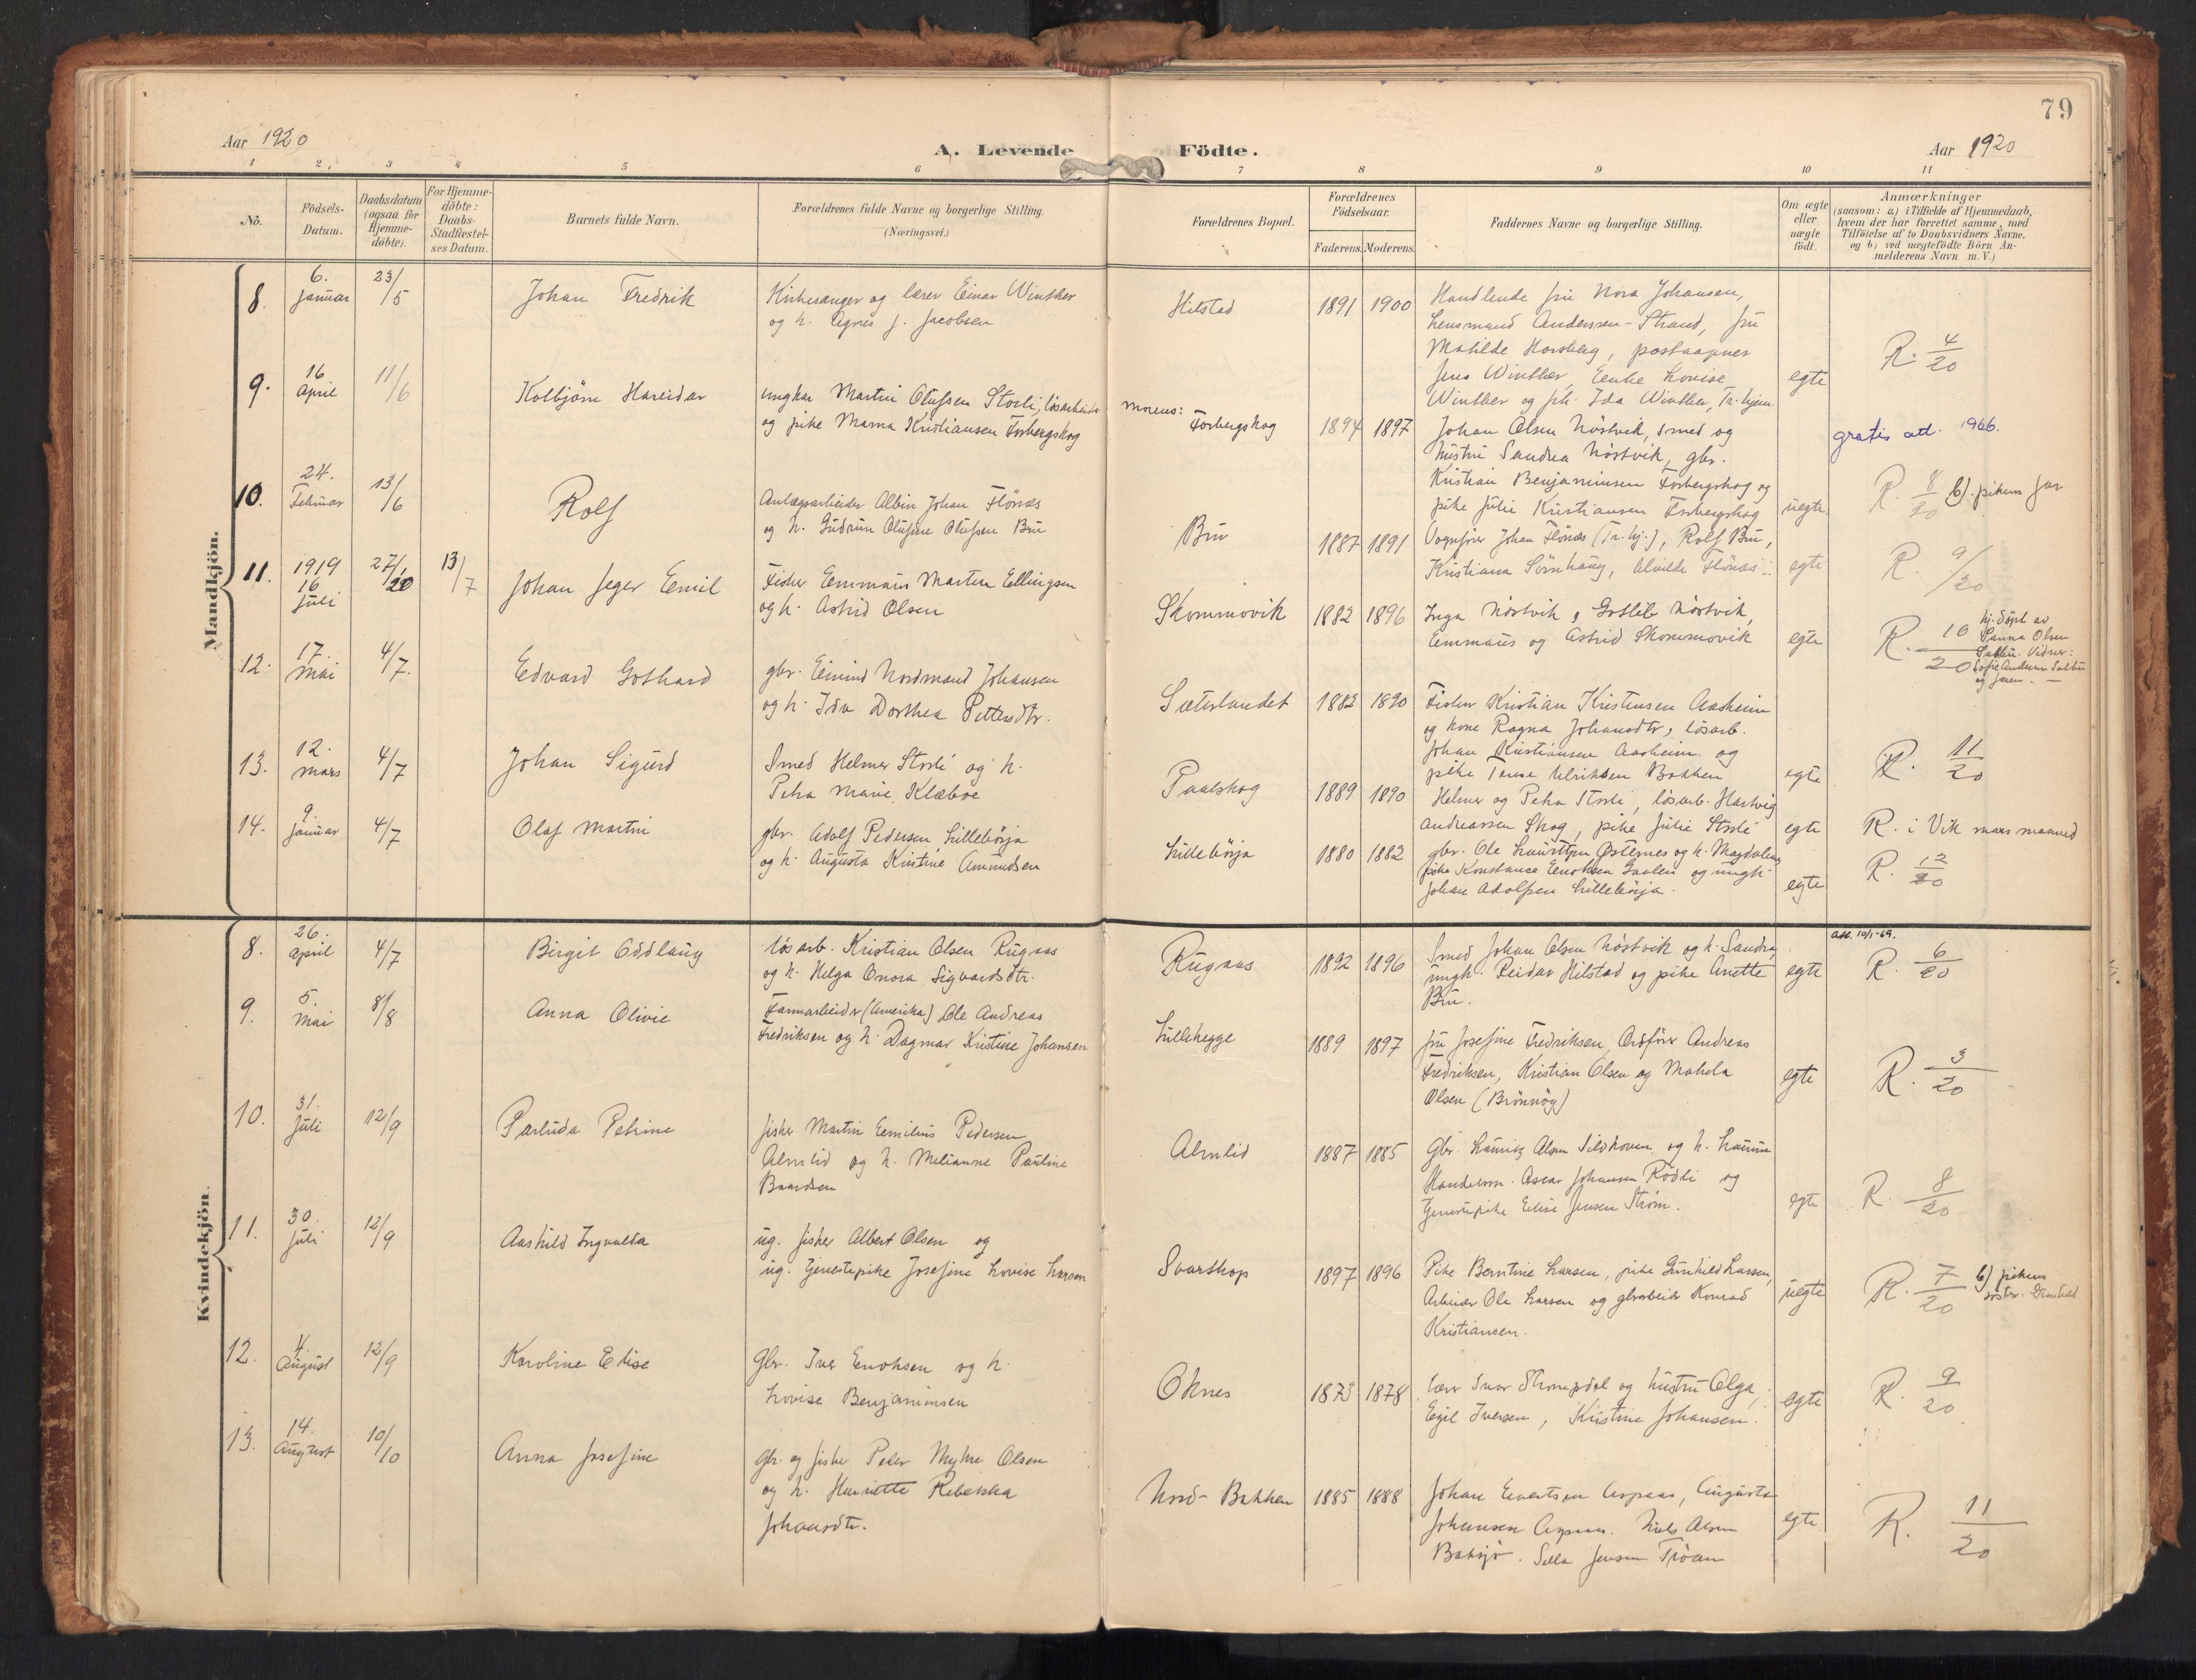 79
Aar 1920
A. Levende Födte.
Aar 1920
1 2 3 4 5 6 7 8 9 10 11
No.
Födsels-
Datum.
Daabsdatum
(ogsaa for
Hjemme-
döbte).
For Hjemme-
döbte:
Daabs-
Stadfæstel-
ses Datum.
Barnets fulde Navn.
Forældrenes fulde Navne og borgerlige Stilling.
(Næringsvei.)
Forældrenes Bopæl.
Forældrenes
Födselsaar.
Faderens. Moderens.
Faddernes Navne og borgerlige Stilling.
Om ægte
eller
uægte
födt.
Anmærkninger
(saasom: a) i Tilfælde af Hjemmedaab,
hvem der har forrettet samme, med
Tilföielse af to Daabsvidners Navne,
og b) ved uægtefödte Börn An-
melderens Navn m. V.)
Mandkjön.
8.
6.
Januar
23/5
Johan Fredrik
Kirkesanger og lærer Einar Winther
og h. Agnes J. Jacobsen
Hilstad
1891 1900
Handlende fru Nora Johansen,
Lensmand Anderssen-Strand, fru
Matilde Horsberg, postaapner
Jens Winther, Enke Lovise
Winther og frk. Ida Winther, Tr.hjem
egte
R. 4/20
9.
16
April
11/6
Kolbjörn Hareidar
ungkar Martin Olufsen Storli, lösarbeider
og pike Marna Kristiansen Forbergskog
morens:
Forbergskog
1894 1897
Johan Olsen Nöstvik, smed og
hustru Sandra Nöstvik, gbr.
Kristian Benjaminsen Forbergskog og
pike Julie Kristiansen Forbergskog
uegte
gratis att. 1966.
R. 8/20 b). pikens far
10.
24.
Februar
13/6
Rolf
Anlægsarbeider Albin Johan Flönæs
og h. Gudrun Olufine Olufsen Bru
Bru
1887 1891
Vognfører Johan Flönæs (Tr.hj.), Rolf Bru,
Kristiana Sörnhaug, Alvilde Flönæs
egte
R. 9/20
11.
1919
16
Juli
27/1 20
13/7
Johan Jeger Emil
Fisker Emmaus Martin Ellingsen
og h. Astrid Olsen
Skommovik
1882 1896
Inga Nöstvik, Gotlib Nöstvik,
Emmaus og Astrid Skommovik
egte
R. 10/20
hj. döpt av
Sanna Olsen
Vidner:
Sofie Andersen
og faren. —
12.
17.
Mai
4/7.
Edvard Gothard
gbr. Eivind Nordmand Johansen
og h. Ida Dorthea Pettersdtr.
Sæterlandet
1882 1890
Fisker Kristian Kristensen Aasheim
og kone Ragna Johansdtr, lösarb.
Johan Kristiansen Aasheim og
pike Tense Ulriksen Bakken
egte
R. 11/20
13.
12.
Mars
4/7
Johan Sigurd
Smed Helmer Storli og h.
Petra Marie Klæboe
Paalskog
1889 1890
Helmer og Petra Storli, lösarb. Hartvig
Andreassen Skog, pike Julie Storli
egte
R. i Vik mars maaned
14.
9.
Januar
4/7
Olaf Martin
gbr. Adolf Pedersen Lillebörja
og h. Augusta Kristine Amundsen
Lillebörja
1880 1882
gbr. Ole Østernes og h. Magdalena
pike Konstance Enoksen og ungk.
Johan Adolfsen Lillebörja.
egte
R. 12/20
Kvindekjön.
8.
26.
April
4/7
Birgit Oddlaug
lösarb. Kristian Olsen Rugaas
og h. Helga Onora Sigvardsdtr.
Rugaas
1892 1896
Smed Johan Olsen Nöstvik og h. Sandra,
ungk. Reidar Hilstad og pike Anette
Bru.
egte
att. 10/1-69.
R. 6/20
9.
5.
Mai
8/8
Anna Olivie
Farmarbeider (Amerika) Ole Andreas
Fredriksen og h. Dagmar Kristine Johansen
Lillehegge
1889 1897
fru Josefine Fredriksen, Ordförer Andreas
Fredriksen, Kristian Olsen og
Olsen (Brönnöy)
egte
R. 3/20
10.
31.
Juli
12/9
Parlida Petrine
fisker Martin Emilius Pedersen
Almlid og h. Melianne Pauline
Baardsen
Almlid
1887 1885
Gbr. Lauritz Olsen og h.
Oscar Johansen Rödli og
Tjenerpike Elise Jensen Ström.
egte
R. 8/20
11.
30.
Juli
12/9
Aashild Ingvalda
ug. fisker Albert Olsen og
ug. tjenestepike Josefine Lovise Larsen
Svartkop
1897 1896
Pike Berntine Larsen, pike Gunhild Larsen,
Arbeider Ole Larsen og gbrarbeider Konrad
Kristiansen.
uegte
R. 7/20 b) pikens
söster. Gunhild
12.
4.
August
12/9
Karoline Elise
Gbr. Iver Enoksen og h.
Lovise Benjaminsen
Oknes
1873 1878
lærer Ivar Skompdal og hustru Olga,
Egil Iversen, Kristine Johansen.
egte
R. 9/20
13.
14.
August
10/10
Anna Josefine
Gbr. og fisker Peder Myhre Olsen
og h. Henriette Rebekka
Johansdtr.
Nord-Bakken
1885 1888
Johan Evertsen Aspaas, Augusta
Johansen Aspaas. Niels Olsen
Baksjö. Sella Jensen Tröan
egte
R. 11/20